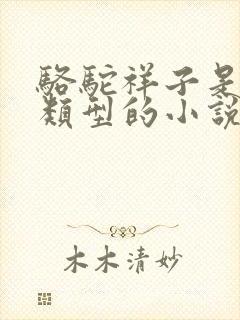 駱駝祥子是
類型的小說
木木清妙